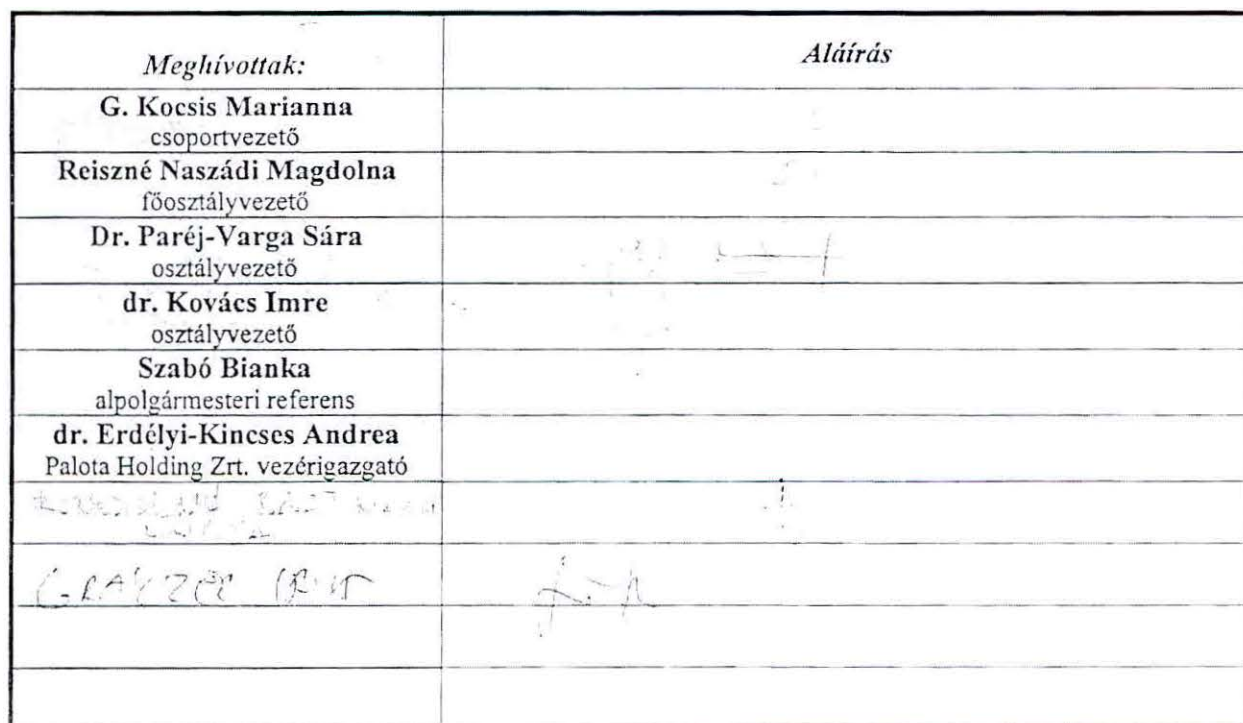 Meghívottak:
Aláírás
G. Kocsis Marianna
csoportvezető
Reiszné Naszádi Magdolna
főosztályvezető
Dr. Paréj-Varga Sára
osztályvezető
dr. Kovács Imre
osztályvezető
Szabó Bianka
alpolgármesteri referens
dr. Erdélyi-Kincses Andrea
Palota Holding Zrt. vezérigazgató